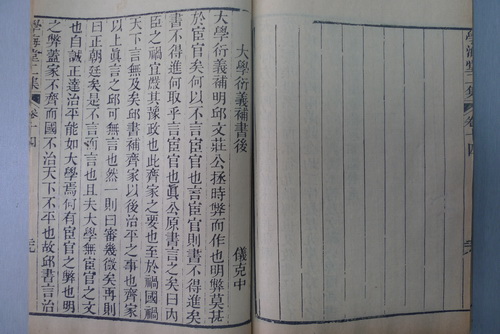 大學衍義補書後
儀克中
大學衍義補明邱文莊公拯時弊而作也明弊莫甚
於宦官矣何以不言宦官也言宦官則書不得進矣
書不得進何取乎言宦官也眞公原書言之矣曰內
臣之禍宜嚴其豫政也此齊家之要也至於禍國禍
天下言無及矣邱書補齊家以後治平之事也齊家
以上眞言之邱可無言也然一則曰審幾微矣再則
曰正朝廷矣是不言而言也且夫大學無宦官之文
也自誠正達治平能如大學焉何有宦官之弊也明
之弊蓋家不齊而國不治天下不平也故邱書言治
學海堂二集 卷十四